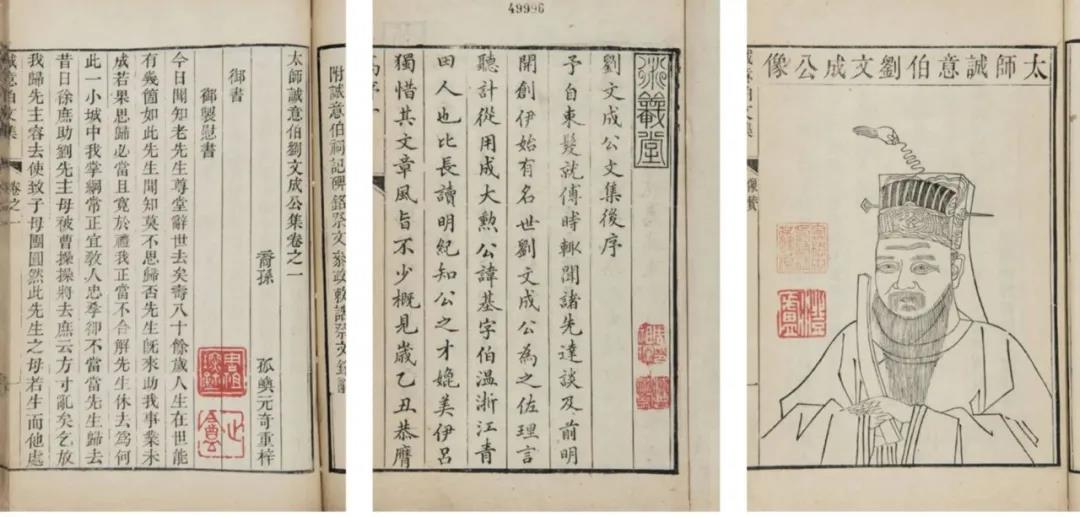 太師誠意伯劉文成公集卷之一
裔孫
孤嶼元奇重梓
御書
御製慰書
今日聞知老先生尊堂辭世去矣壽八十餘歲人生在世能
有幾箇如此先生聞知莫不思歸否先生既來助我事業未
成若果思歸必當且寬於禮我正當不合解先生休去為何
此一小城中我掌綱常正宜敎人忠孝卻不當當先生歸去
昔日徐庶助劉先主母被曹操操將去庶云方寸亂矣乞放
我歸先主容去使致子母團圓然此先生之母若生而他處
誠意伯文集
卷之一
49996
劉文成公文集後序
予自束髮就傅時輙聞諸先達談及前明
開創伊始有名世劉文成公為之佐理言
聽計從用成大勲公諱基字伯温浙江青
田人也比長讀明紀知公之才媲美伊呂
獨惜其文章風旨不少概見歲乙丑恭膺
太師誠意伯劉文成公像
像贊